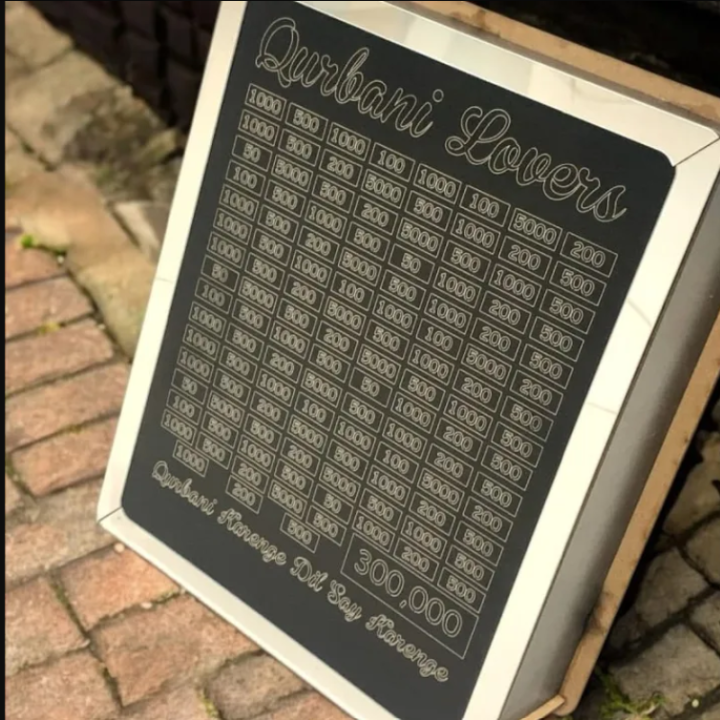 Qurbani Lovers
1000 500 1000 100 1000 100 5000 200
1000 500 200 5000 500 1000 200 500
50 5000 500 200 5000 500 1000 500
100 500 1000 500 50 1000 200 500
1000 500 200 5000 500 1000 200 500
1000 500 1000 100 1000 100 5000 200
1000 500 200 5000 500 1000 200 500
50 5000 500 200 5000 500 1000 500
100 500 1000 500 50 1000 200 500
1000 500 200 5000 500 1000 200 500
1000 500 1000 100 1000 100 5000 200
50 5000 200 5000 500 1000 200 500
100 500 1000 500 50 1000 200 500
1000 500 200 5000 500
1000 200 500
300,000
Qurbani Karenge Dil Say Karenge